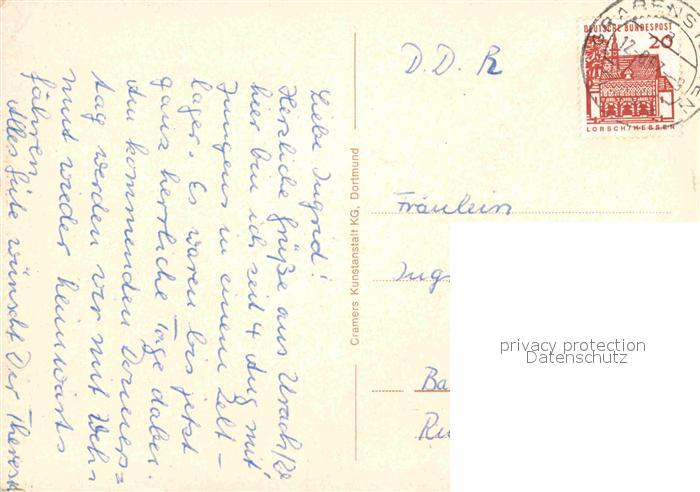 Liebe Ingrid!
Herzliche Grüße aus Urach/
hier bin ich seit 4 Aug mit
Jungens in einem Zelt-
lager. Es waren bis jetzt
ganz herrliche Tage dabei.
Am kommenden Donners=
tag werden wir mit
und wieder heimwärts
fahren.
Alles Gute wünscht Dir
Cramers Kunstanstalt KG, Dortmund
D.D.R
Fräulein
Ing
Ba
DEUTSCHE BUNDESPOST
20
LORSCH/HESSEN
privacy protection
Datenschutz